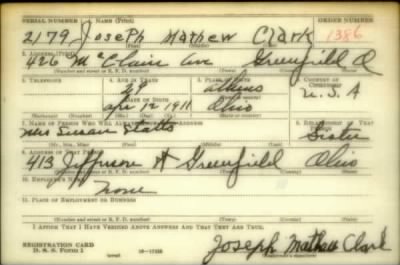 SERIAL NUMBER 1. NAME (Print) ORDER NUMBER
2179 Joseph Mathew Clark 1386
(First) (Middle) (Last)
2. ADDRESS (Print)
426 McClain Ave Greenfield O
(Number and street or R. F. D. number) (Town) (County) (State)
3. TELEPHONE 4. AGE IN YEARS 5. PLACE OF BIRTH 6. COUNTRY OF CITIZENSHIP
29
DATE OF BIRTH
Apr 12 1911 Ohio U.S.A
(Exchange) (Number) (Mo.) (Day) (Yr.) (State or country)
7. NAME OF PERSON WHO WILL ALWAYS KNOW YOUR ADDRESS 8. RELATIONSHIP OF THAT PERSON
Mrs Susan Sister
(Mr., Mrs., Miss) (First) (Middle) (Last)
9. ADDRESS OF THAT PERSON
413 Jefferson St Greenfield Ohio
(Number and street or R. F. D. number) (Town) (County) (State)
10. EMPLOYER'S NAME
None
11. PLACE OF EMPLOYMENT OR BUSINESS
(Number and street or R. F. D. number) (Town) (County) (State)
I AFFIRM THAT I HAVE VERIFIED ABOVE ANSWERS AND THAT THEY ARE TRUE.
REGISTRATION CARD
D. S. S. Form 1 Joseph Mathew Clark